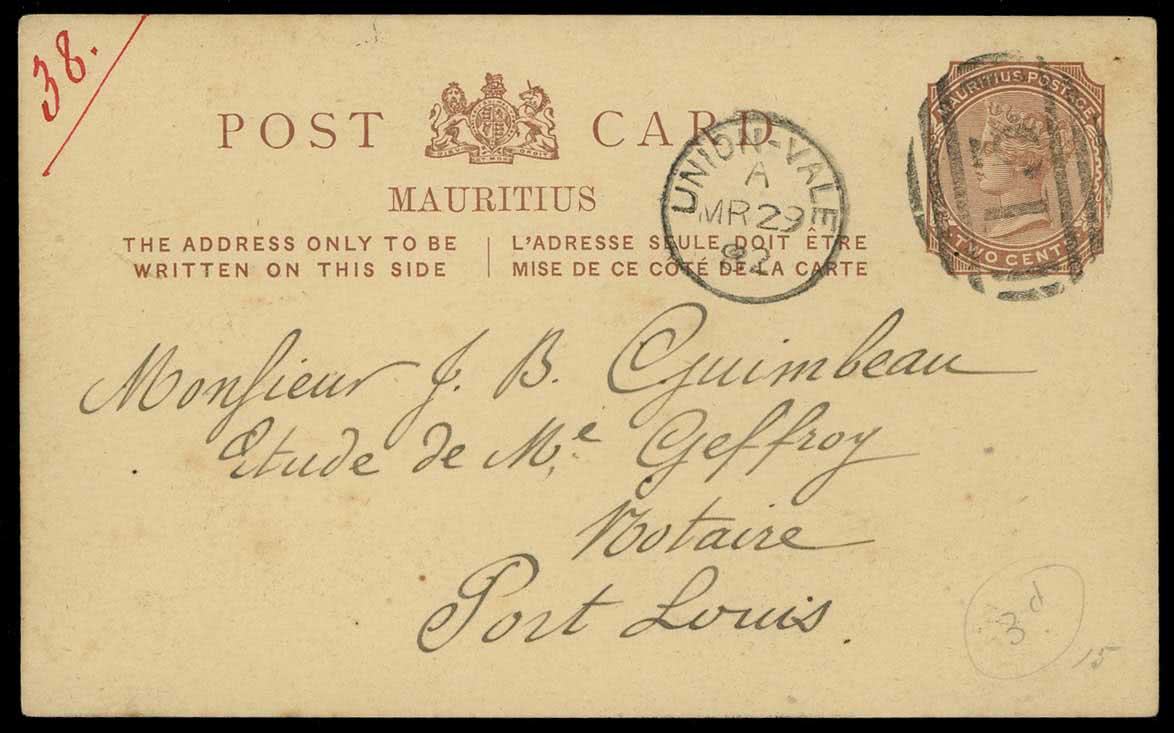 38.
POST CARD
MAURITIUS
THE ADDRESS ONLY TO BE
WRITTEN ON THIS SIDE
L'ADRESSE SEULE DOIT ÊTRE
MISE DE CE COTÉ DE LA CARTE
UNION-VALE
A
MR 29
92
MAURITIUS POSTAGE
TWO CENTS
Monsieur J. B. Guimbeau
Etude de Me. Geffroy
Notaire
Port Louis.
3d
15